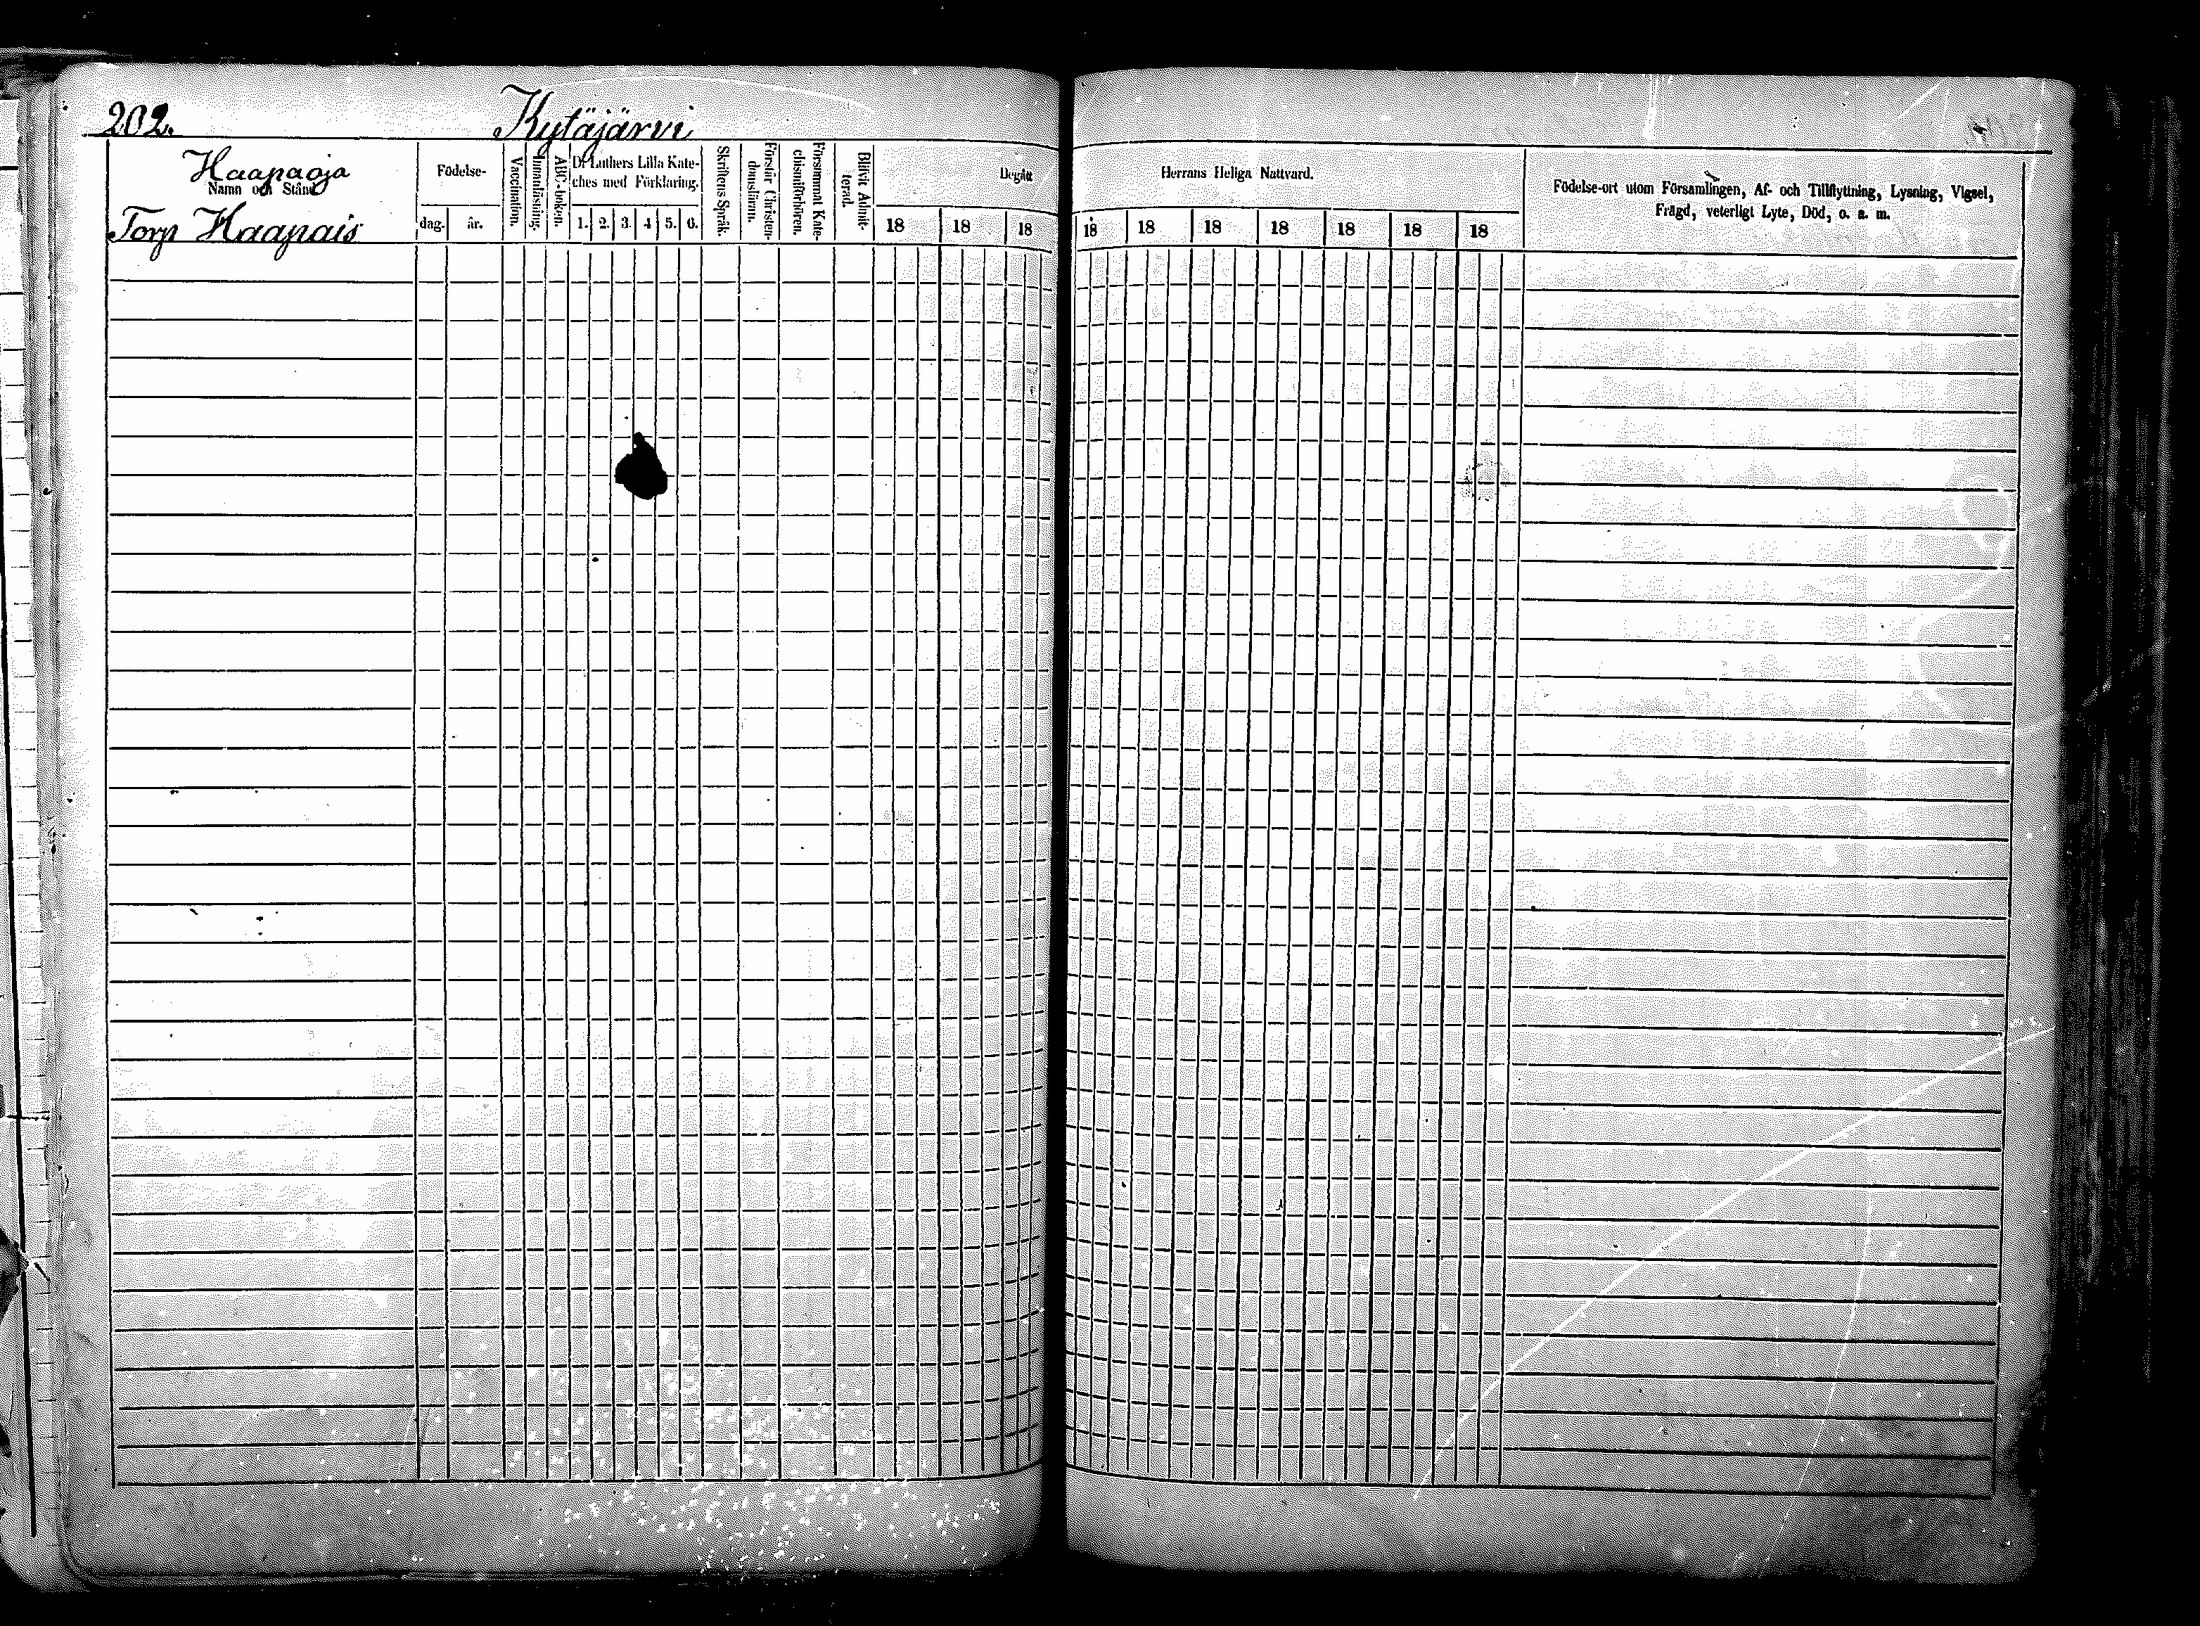 202.
Kytäjärvi
Haapaoja
Namn och Stånd.
Torp Haapais
Födelse-
dag.
år.
Vaccination.
Innanläsning.
ABC-boken.
D:r Luthers Lilla Kate-
ches med Förklaring.
1. 2. 3. 4 5. 6.
Skriftens Språk.
Förstår Christen-
domsläran.
Försummat Kate-
chismiförhören.
Blifvit Admit-
terad.
Begått
18 18 18
Herrans Heliga Nattvard.
18 18 18 18 18 18 18
Födelse-ort utom Församlingen, Af- och Tillflyttning, Lysning, Vigsel,
Frägd, veterligt Lyte, Död, o. a. m.